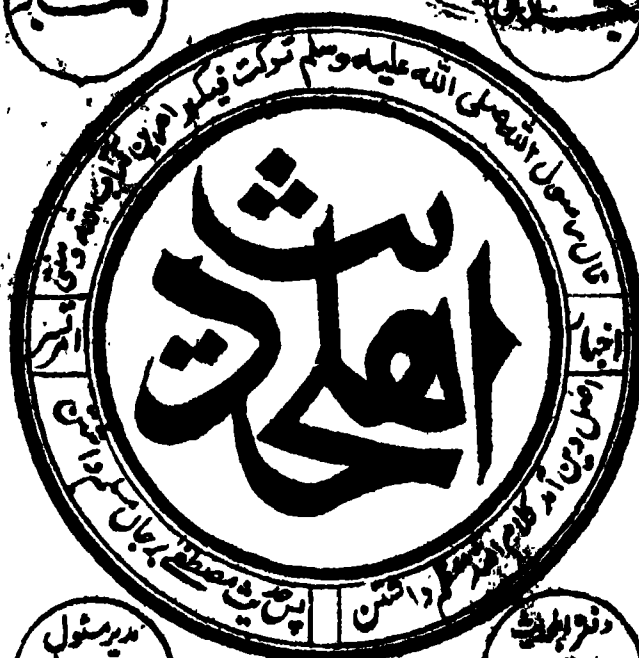 قال رسول الله صلی الله علیه وسلم ترکت فیکم امرین کتاب الله و سنتی
اهلحدیث
اخبار
امرتسر
اصل دین آمد کلام الله معظم داشتن
پس حدیث مصطفےٰ بر جاں مسلم داشتن
مدیر مسئول
دفتر اہلحدیث